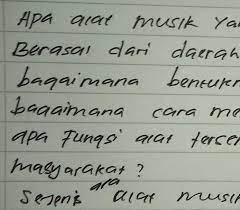 Apa alat musik ya
Berasal dari daerah
bagaimana bentukn
bagaimana cara me
apa Fungsi alat terse
masyarakat?
Sejenis ara alat musi